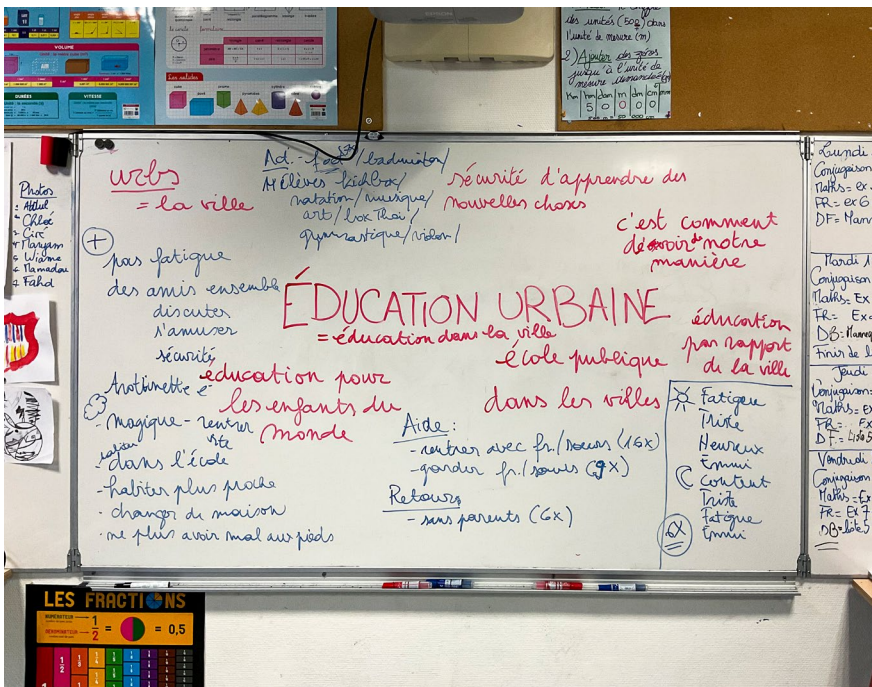 VOLUME
DURÉES
VITESSE
Les solides
des unités (50g) dans
l'unité de mesure (m)
2) Ajouter des zéros
jusqu'à l'unité de
mesure demandée
Km hm dam m dm cm mm
5 0 0 0 0
Photos
Abdul
Chloé
Ciré
Maryam
Mamadou
Fahd
urbs
= la ville
Ad. - foot/badminton/
11 élèves kickbox/
natation/musique/
art/box Thaï/
gymnastique/violon/
sécurité d'apprendre des
nouvelles choses
c'est comment
de notre
manière
+
pas fatigue
des amis ensemble
discuter
s'amuser
sécurité
ÉDUCATION URBAINE
= éducation dans la ville
école publique
dans les villes
éducation
par rapport
de la ville
éducation pour
les enfants du
monde
trottinette é
magique - rentrer
vite
dans l'école
- habiter plus proche
- changer de maison
- ne plus avoir mal aux pieds
Aide :
- rentrer avec fr./soeurs (16x)
- garder fr./soeurs (9x)
Retours
- sans parents (6x)
Fatigue
Triste
Heureux
Ennui
Content
Triste
Fatigue
Ennui
Lundi
Conjugaison
Maths = ex
FR = ex 6
DF =
Mardi 1
Conjugaison
Maths = Ex
FR = Ex
DB =
Finir de l
Jeudi
Conjugaison =
Maths = Ex
FR = Ex
DF =
Vendredi
Conjugaison
Maths = Ex
FR = Ex 7
DB = liste 5
LES FRACTIONS
NUMÉRATEUR
DÉNOMINATEUR
1/2 = = 0,5
1
1/2
1/3
1/4